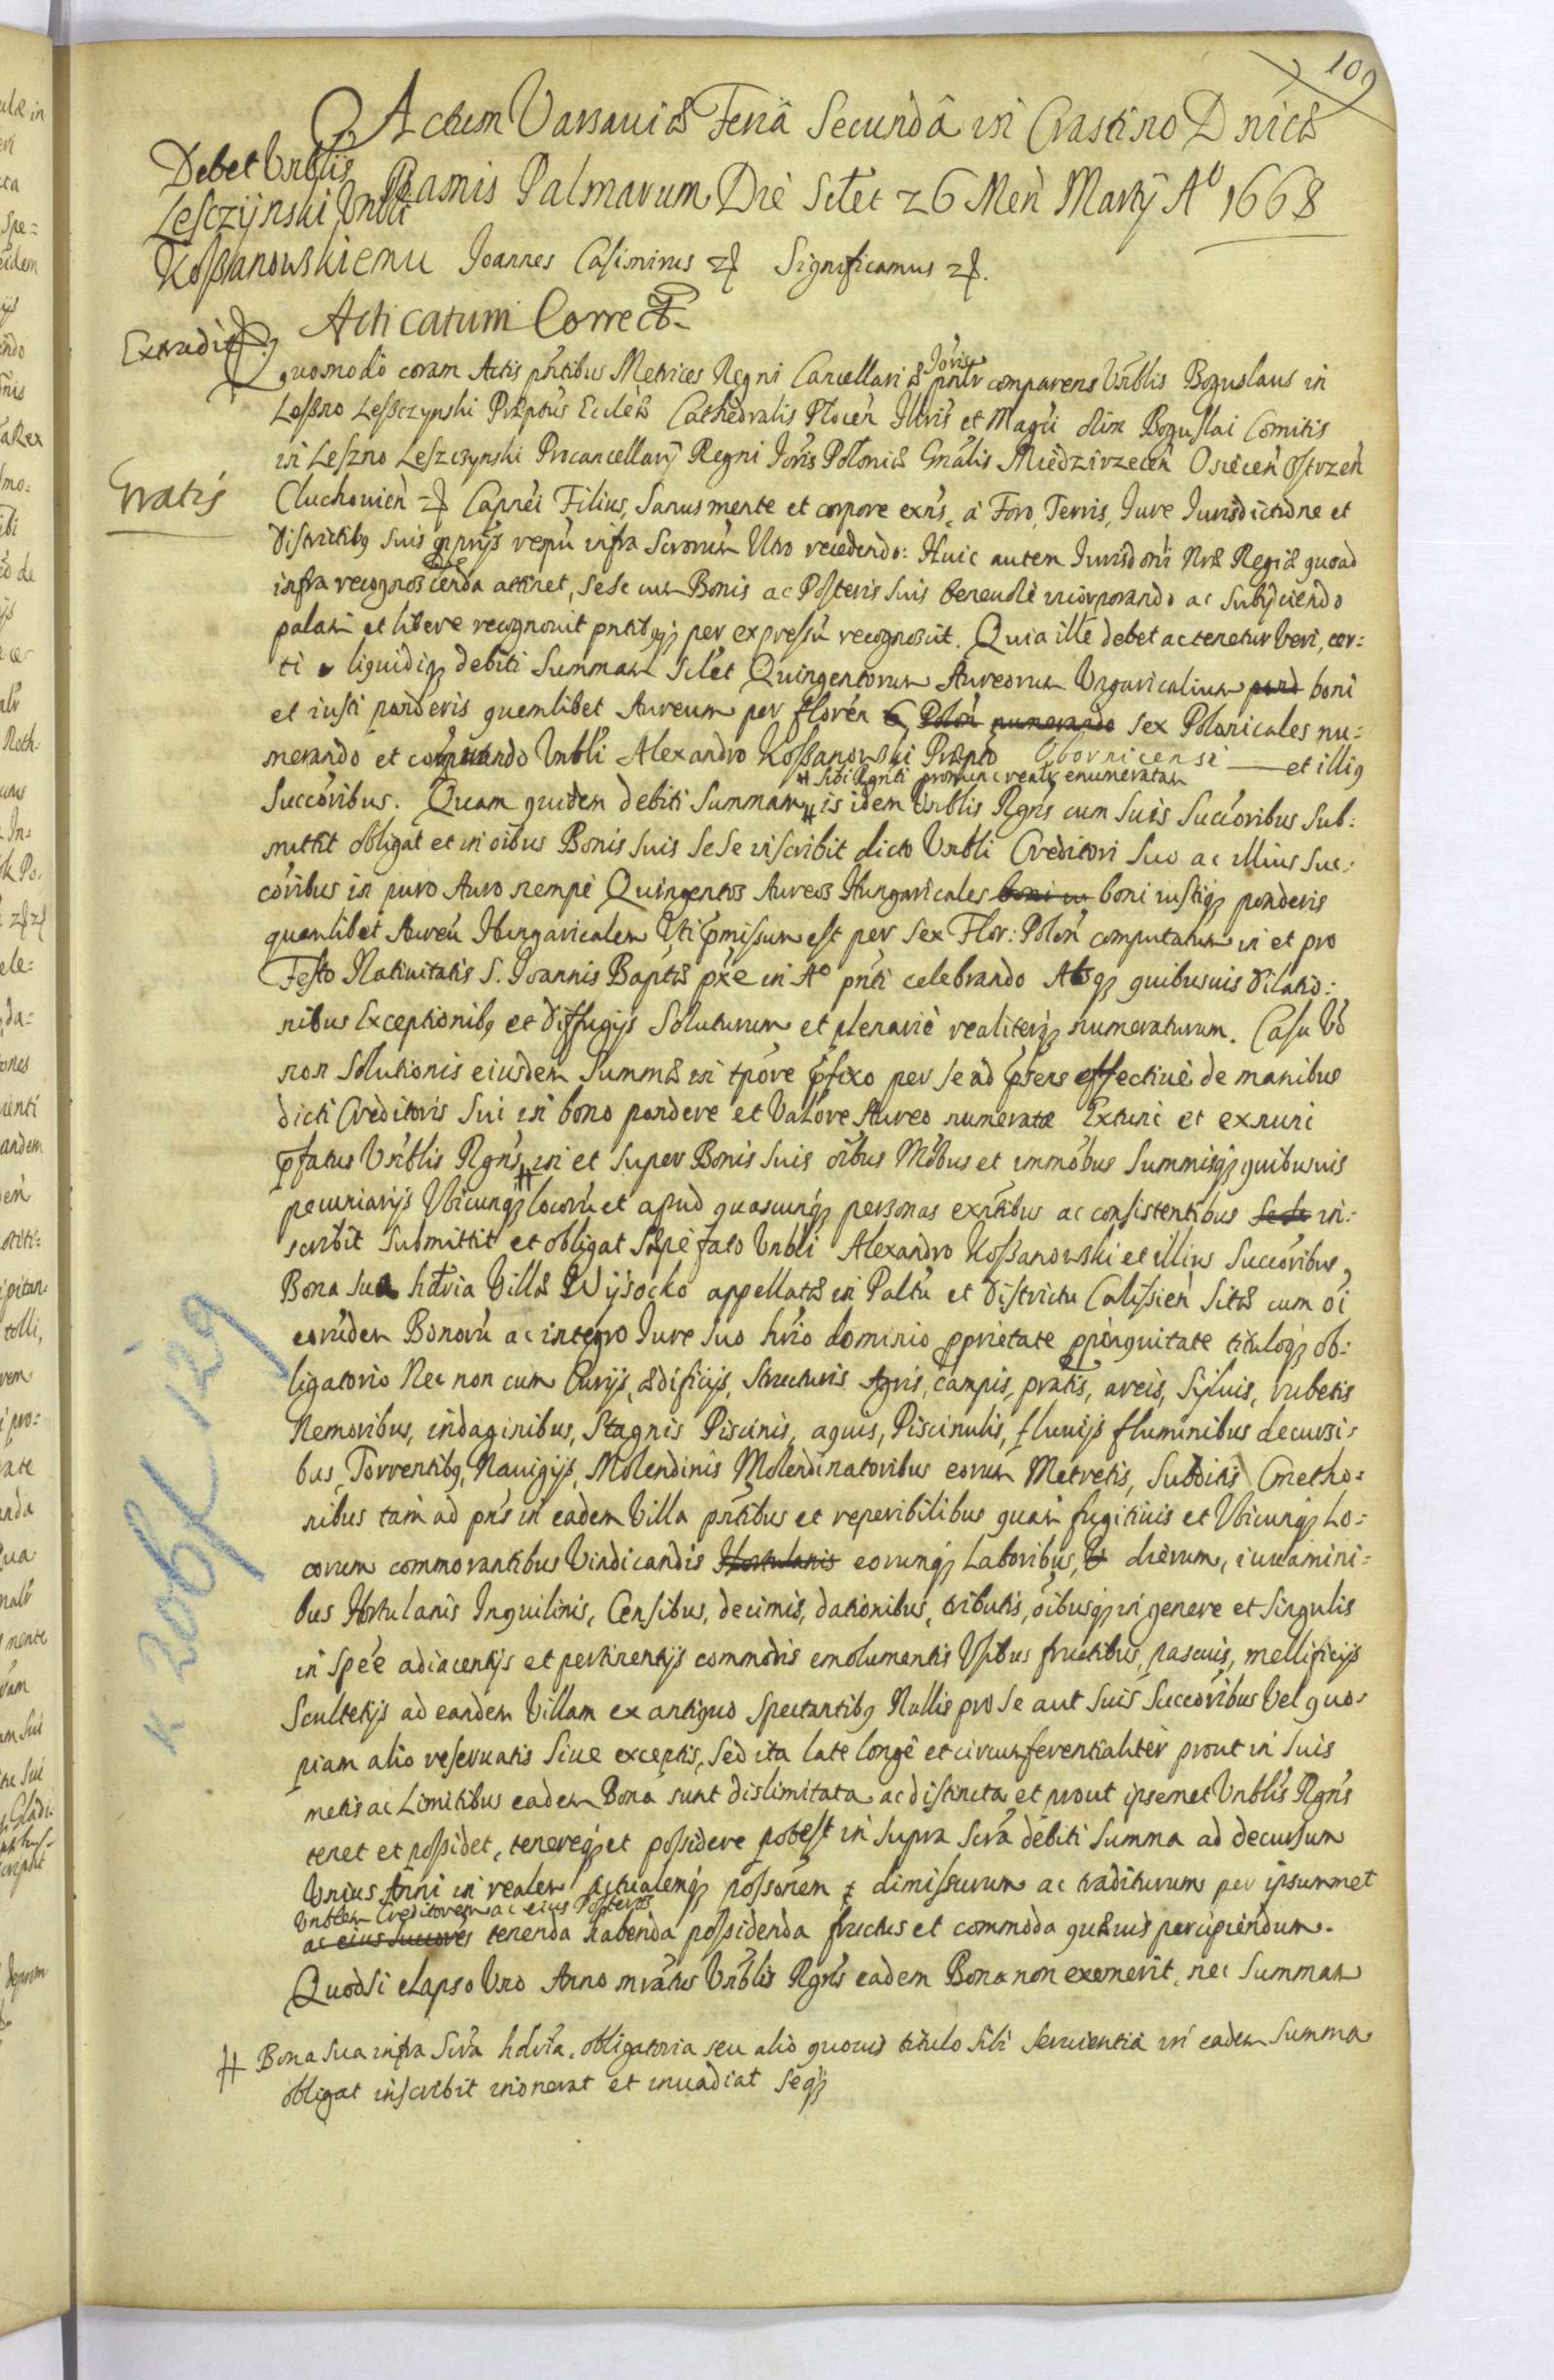 109
Actum Varsaviæ Feriâ Secundâ in Crastino Dnicæ
Ramis Palmarum Die Scilet 26 Men Martÿ A⁰ 1668
Debet Vrblis
Lesczÿnski Vnbli
Koßanowskiemu
Joannes Casimirus Significamus
Acticatum Correct
Extradit
Gratis
quomodo coram Actis pntibus Metrices Regni Cancellariæ Joris pnlr comparens Vrblis Boguslaus in
Leßno Leßczynski Præptus Ecclèæ Cathedralis Plocen Illris et Magci olim Boguslai Comitis
in Leszno Leszczynski Procancellarÿ Regni Joris Poloniæ Gnalis Miedzirzecen Osiecen Ostrzen
Cluchouien Capnei Filius, Sanus mente et corpore exns, a Foro, Terris, Jure Jurisdictione et
Districtibq suis pprijs respu infra Scrorum Vtro recedendo: Huic autem Jurisdoni Nræ Regiæ quoad
infra recognoscenda attinet, sese cum Bonis ac Posteris suis beneuole incorporando ac subÿciendo
palam et libere recognouit pntibqꝫ per expressu recognoscit. Quia ille debet ac tenetur Veri, cer:
ti liquidiqꝫ debiti Summam Scilet Quingentorum Aureorum Vngaricalium pond boni
et iusti ponderis quemlibet Aureum per floren 6 Polon numerando sex Polonicales nu:
merando et computando Vnbli Alexandro Koßanowski Præpto Obornicensi et illiq
# sibi Rgnti prompte et realr enumeratam
Succoribus. Quam quidem debiti Summam # is idem Vrblis Rgns cum suis Succoribus Sub:
mittit obligat et in oibus Bonis suis sese inscribit dicto Vnbli Creditori suo ac illius Suc:
coribus in puro Auro nempe Quingentos Aureos Hungaricales boni iu boni iustiqꝫ ponderis
quemlibet Aureu Hungaricalem Vti pmissum est per sex Flor: Polon computatum in et pro
Festo Natiuitatis S. Joannis Baptæ pxe in A⁰ pnti celebrando Absqꝫ quibusuis dilatio:
nibus Exceptionibq et diffugijs Soluturum et plenariè realiterqꝫ numeraturum. Casu Vo
non Solutionis eiusdem Summæ in tpore pfixo per se ad psens effectiuè de manibus
dicti Creditoris sui in bono pondere et Valore Aureo numeratæ Extunc et exnunc
pfatus Vrblis Rgns # in et super Bonis suis oibus Mobus et immobus Summisqꝫ quibusuis
pecuniarijs Vbicunqꝫ locoru et apud quascunqꝫ personas exntibus ac consistentibus sese in:
scribit submittit et obligat Sæpefato Vnbli Alexandro Koßanowski et illius Succoribus,
Bona sua hdria Villæ Wÿsocko appellatæ in Paltu et districtu Calissien sitæ cum oi
eorudem Bonoru ac integro Jure suo hrio dominio pprietate ppinquitate tituloqꝫ ob:
ligatorio Nec non cum Curijs, ædificijs, Structuris Agris, campis, pratis, areis, Syluis, rubetis
Nemoribus, indaginibus, Stagnis Piscinis, aquis, Piscinulis, fluuijs fluminibus decursi:
bus, Torrentibq, Nauigijs, Molendinis Molendinatoribus eorum Metretis, Subditis Cmetho:
nibus tam ad pns in eadem Villa pntibus et reperibilibus quam fugitiuis et Vbicunqꝫ Lo:
corum commorantibus Vindicandis Hortulanis eorunqꝫ Laboribus, dierum, iuuamini:
bus Hortulanis Inquilinis, Censibus, decimis, dationibus, tributis, oibusqꝫ in genere et singulis
in spee adiacentijs et pertinentijs commodis emolumentis Vsibus fructibus, pascuis, mellificijs
Scultetijs ad eandem Villam ex antiquo spectantibq Nullis pro se aut suis Succoribus Vel quo:
piam alio reseruatis siue exceptis, sed ita late longè et circumferentialiter prout in suis
metis ac Limitibus eadem Bona sunt dislimitata ac distincta et prout ipsemet Vrblis Rgns
tenet et possidet, tenereqꝫ et possidere potest in supra scra debiti Summa ad decursum
Vnius Anni in realem actualemqꝫ possonem dimissurum ac traditurum per ipsummet
Vnblem Creditorem ac eius Posteros
ac eius Succores tenenda habenda possidenda fructus et commoda quæuis percipiendum.
Quodsi elapso Vno Anno mratus Vrblis Rgns eadem Bona non exemerit, nec Summam
# Bona sua infra scra hdria, obligatoria seu alio quouis titulo sibi seruientia in eadem Summa
obligat inscribit inonerat et inuadiat seqꝫ
K 206 f 129